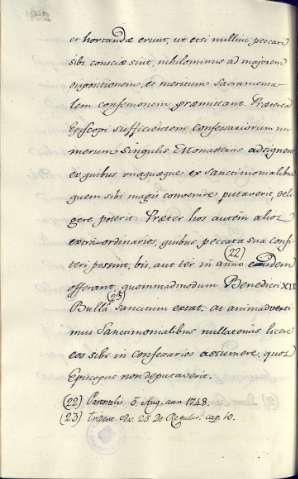 et hortandæ erunt, ut etsi nullius peccati
sibi consciæ sint, nihilominus ad majorem
dispositionem, et meritum Sacramenta-
lem confessionem præmittant. Præterea
Episcopi sufficientem confessariorum nu-
merum singulis Monasteriis adsignent,
ex quibus unaquæque ex Sanctimonialibus
quem sibi magis convenire putaverit, deli-
gere poterit. Præter hos autem alios
extraordinarios, quibus peccata sua confi-
teri possint, bis, aut ter in anno eisdem (22)
offerant, quemmadmodum Benedicti XIV
Bulla sancitum extat. (23) At animadverti-
mus Sanctimonialibus nullatenus licere
eos sibi in confesarios assumere, quos
Episcopus non deputaverit.
(22) Pastoralis 5. Aug. ann. 1748.
(23) Trident. Ses. 25 De Regular. cap. 10.